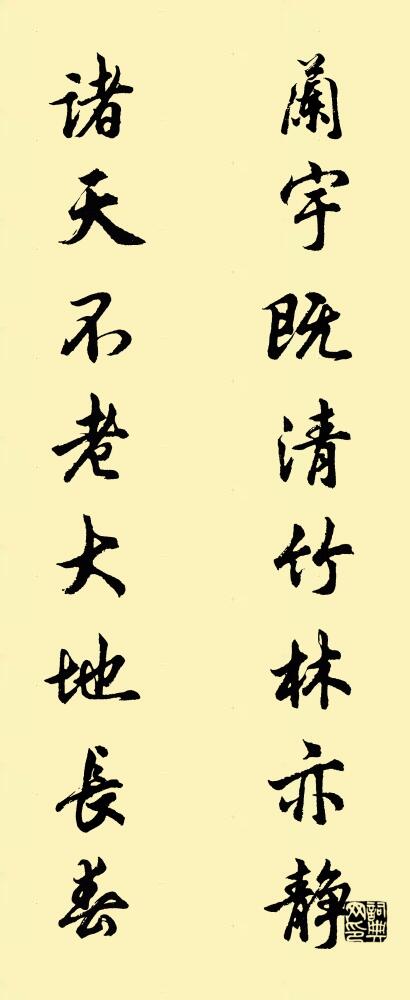 蘭宇既清竹林亦静
諸天不老大地長春
詞典網印